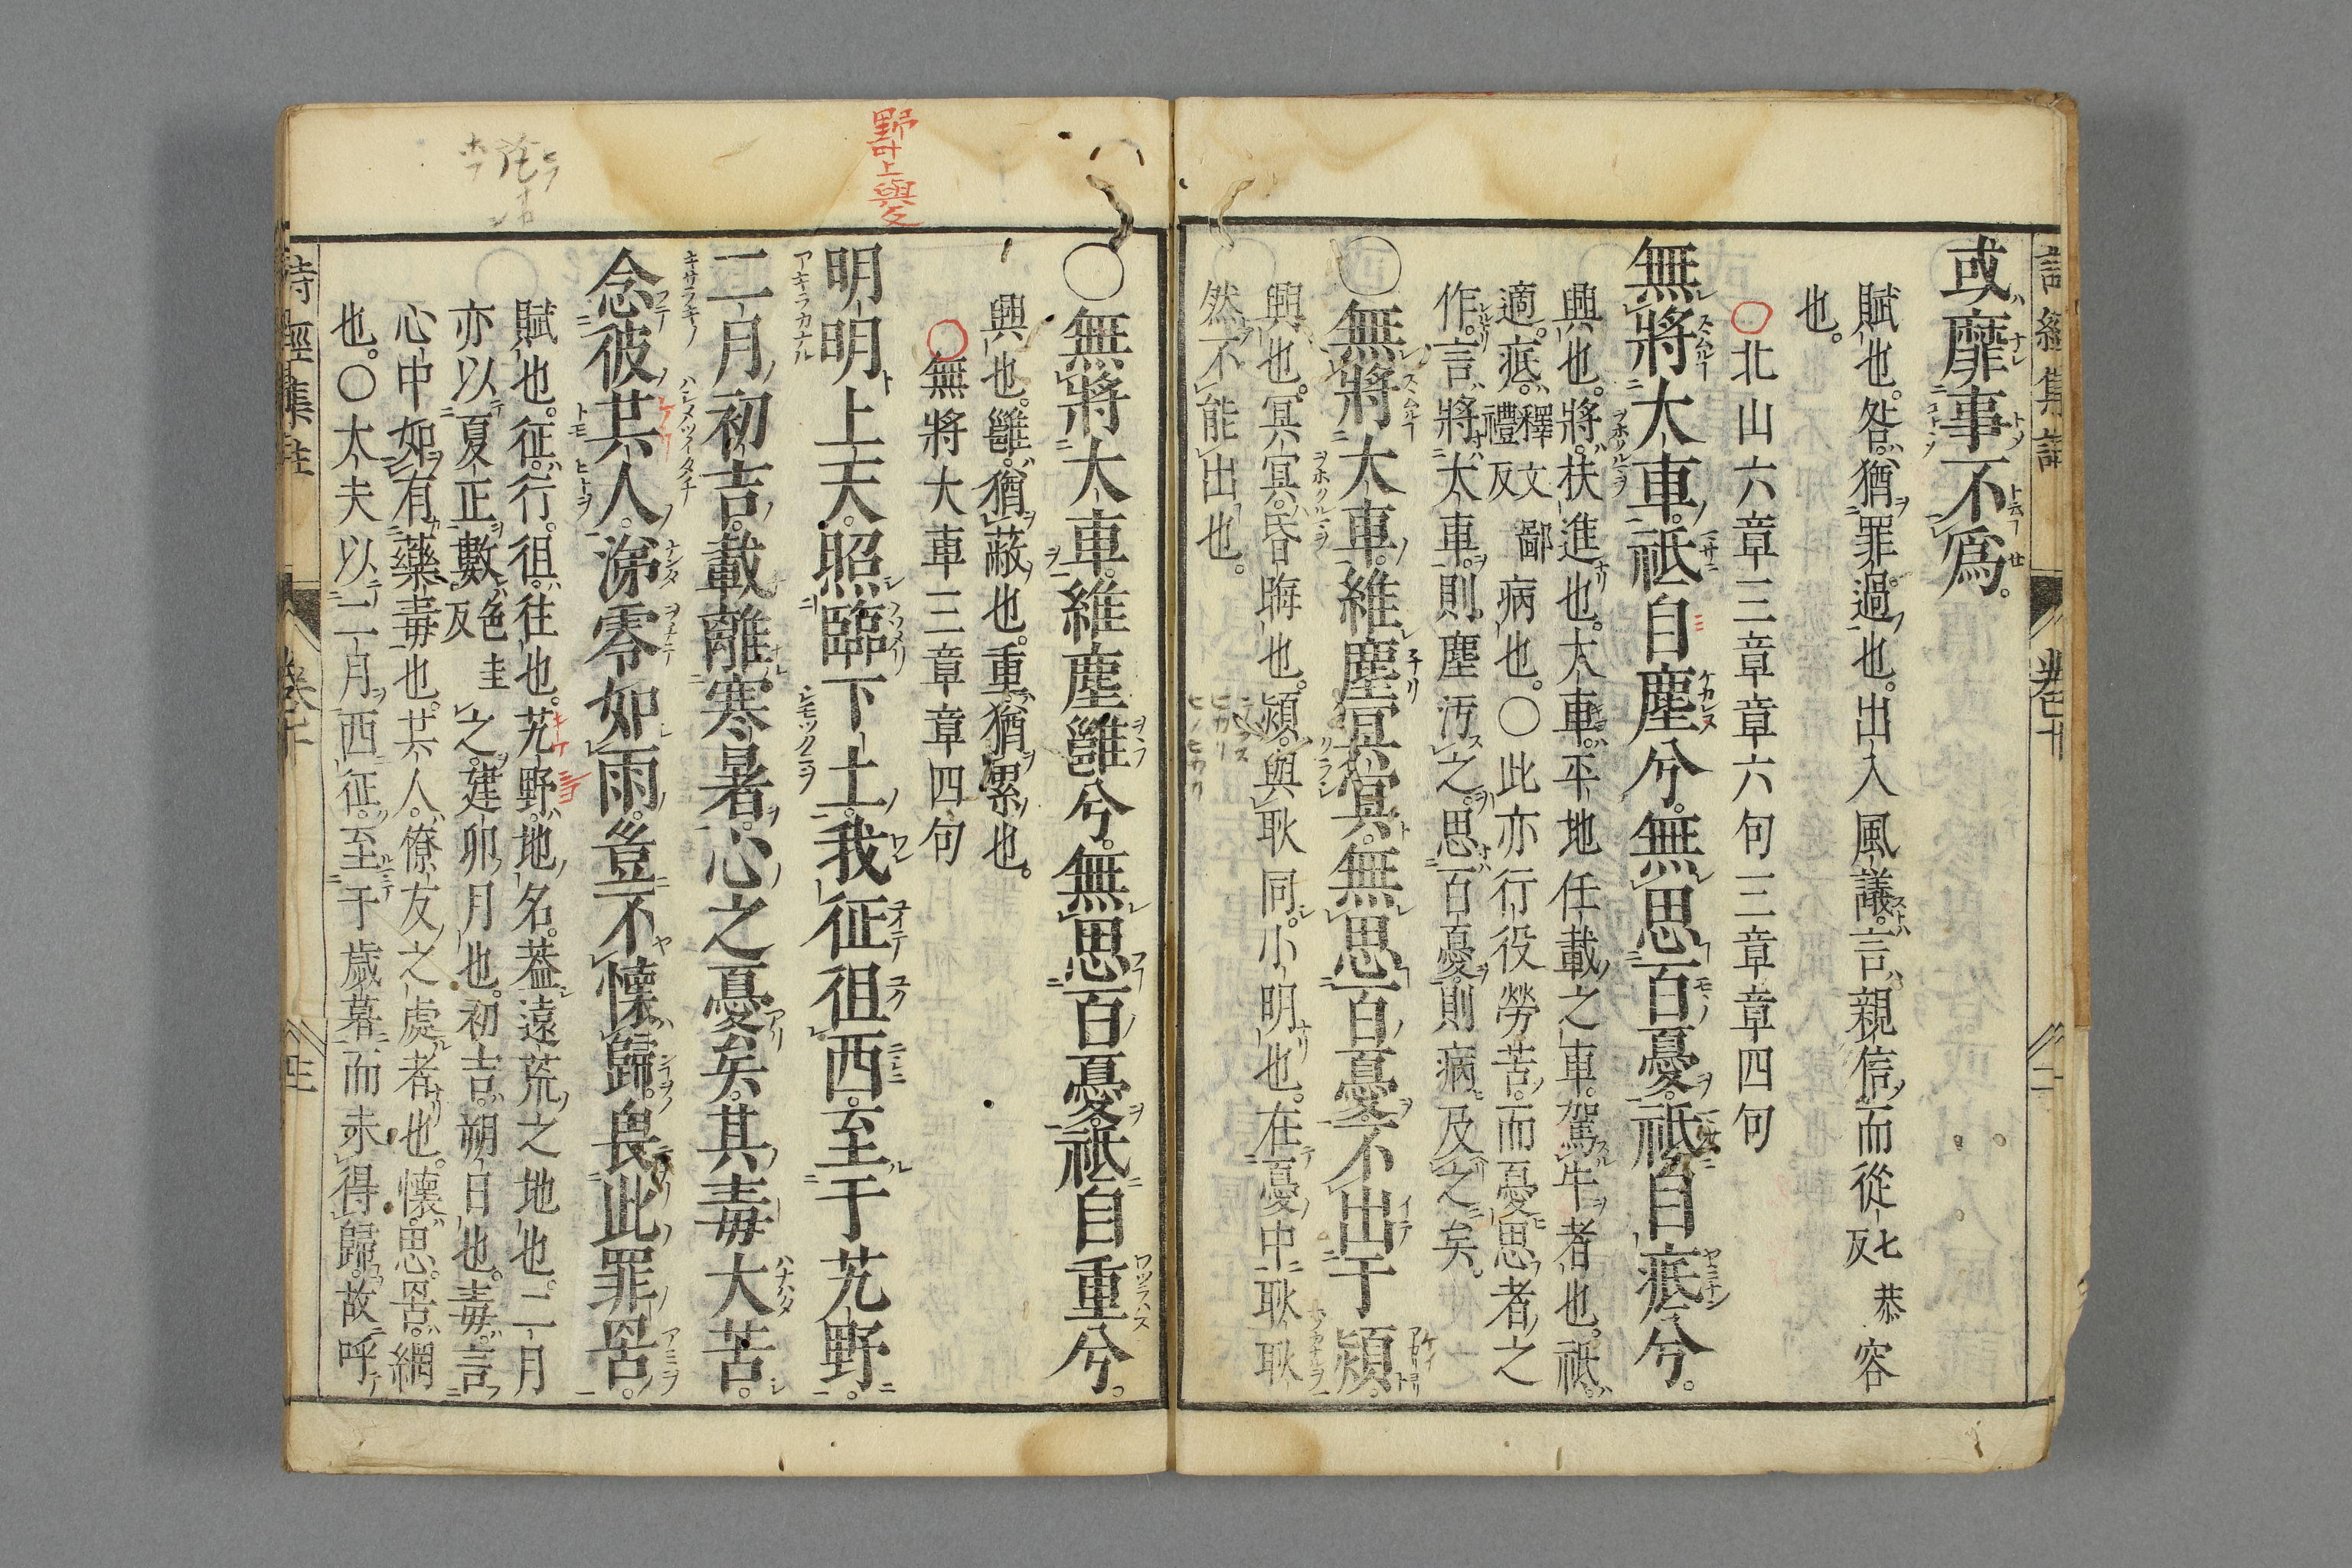 或靡事不爲。
賦也。咎。猶罪過也。出入風議。言親信而從七恭反容
也。
○北山六章三章章六句三章章四句
無將大車。祇自塵兮。無思百憂。祇自疧兮。
興也。將。扶進也。大車。平地任載之車。駕牛者也。祇。
適。疧。釋文禮反鄙病也。○此亦行役勞苦。而憂思者之
作。言將大車。則塵汚之。思百憂。則病及之矣。
○無將大車。維塵冥冥。無思百憂。不出于熲。
興也。冥冥。昏晦也。熲。與耿同。小明也。在憂中。耿耿
然不能出也。
○無將大車。維塵雝兮。無思百憂。祇自重兮。
興也。雝。猶蔽也。重。猶累也。
○無將大車三章章四句
野叶上與反
明明上天。照臨下土。我征徂西。至于艽野。
二月初吉。載離寒暑。心之憂矣。其毒大苦。
念彼共人。涕零如雨。豈不懷歸。畏此罪罟。
賦也。征。行。徂。往也。艽野。地名。蓋遠荒之地也。二月
亦以夏正數色圭反之。建卯月也。初吉。朔日也。毒。言
心中如有藥毒也。共人。僚友之處者也。懷。思。罟。網
也。○大夫以二月西征。至于歲暮。而未得歸。故呼
詩經集註
卷十